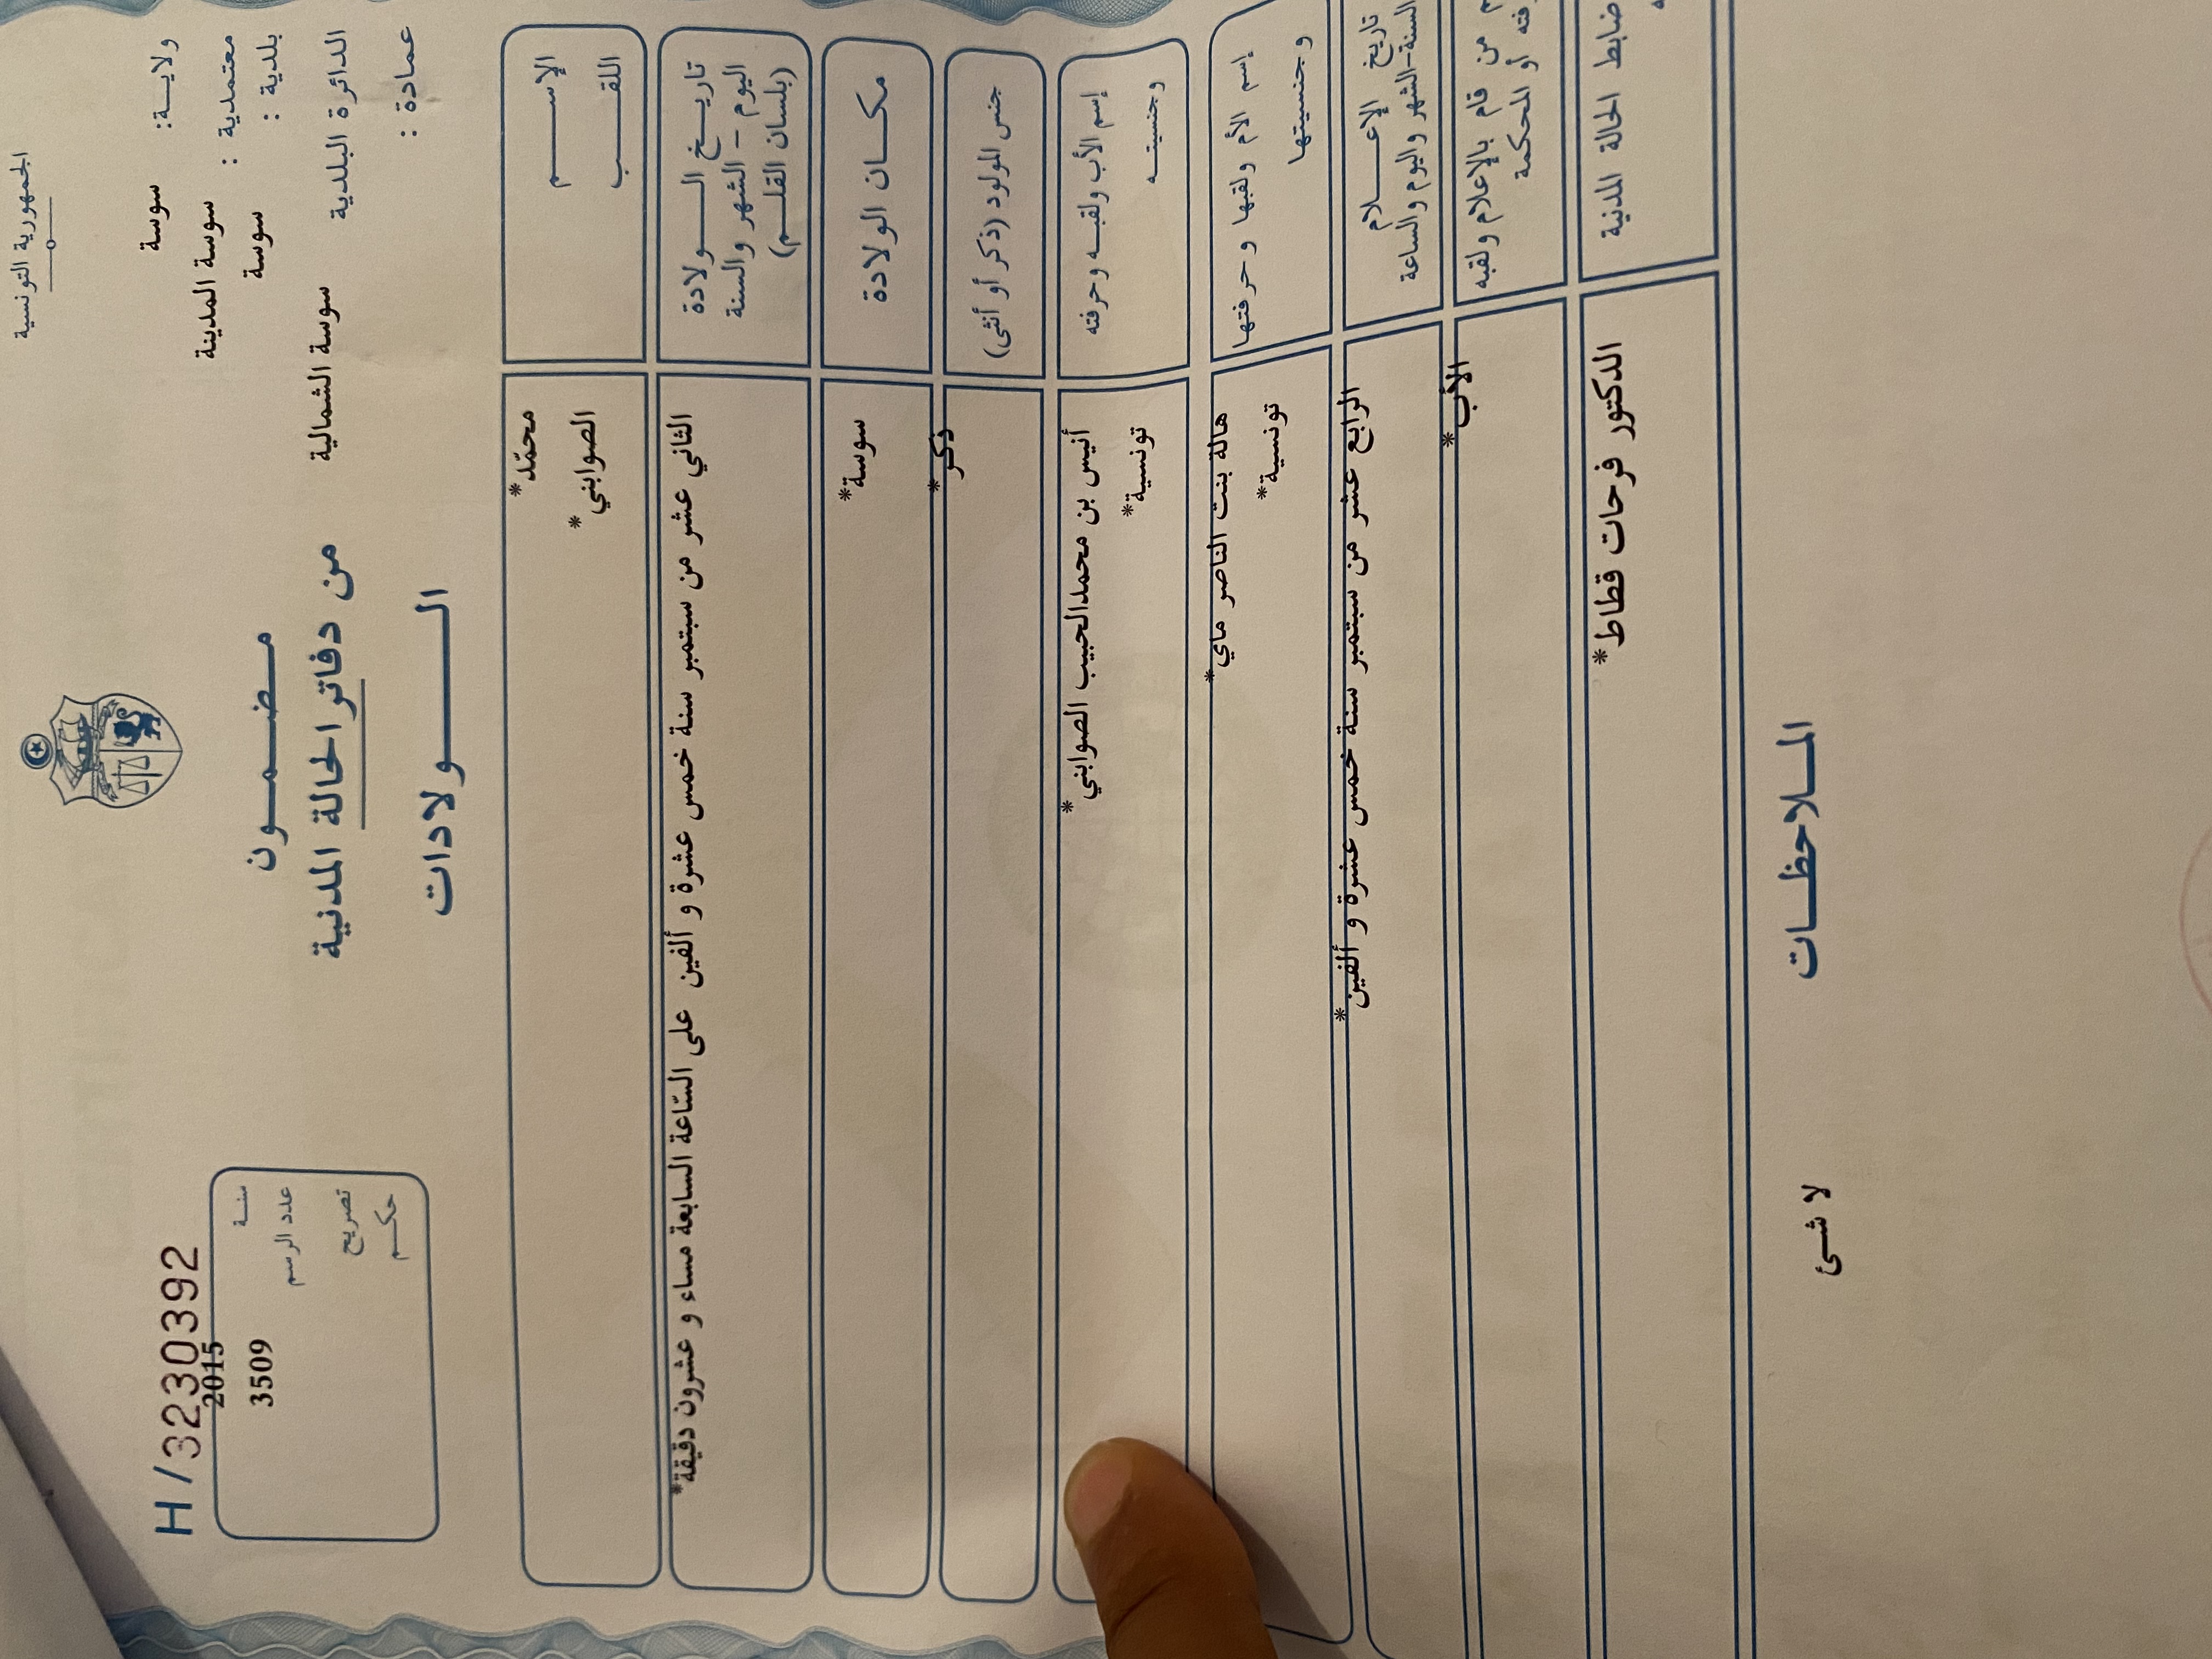 الجمهورية التونسية
ولايـــة: سوسة
معتمدية : سوسة المدينة
بلدية : سوسة
الدائرة البلدية سوسة الشمالية
عمادة :
مـضـمـون
من دفاتر الحالة المدنية
الـــولادات
H/32230392
سنـة 2015
عدد الرسم 3509
تصريح
حكـم
الإســـم محمّد*
اللقـــب الصوابني*
تاريـــخ الـــولادة
اليوم – الشهر والسنة
(بلسان القلـــم)
الثاني عشر من سبتمبر سنة خمس عشرة و ألفين على السّاعة السابعة مساء و عشرون دقيقة*
مكـــان الولادة سوسة*
جنس المولود (ذكر أو أنثى) ذكر*
إسم الأب ولقبـه وحرفته أنيس بن محمدالحبيب الصوابني*
وجنسيتـــه تونسية*
إسم الأم ولقبها وحرفتها هالة بنت الناصر ماي*
وجنسيتها تونسية*
تاريخ الإعـــلام
السنة-الشهر واليوم والساعة
الرابع عشر من سبتمبر سنة خمس عشرة و ألفين*
من قام بالإعلام ولقبه
أو المحكمة
الأب*
ضابط الحالة المدنية
الدكتور فرحات قطاط*
المـلاحظـات
لا شئ